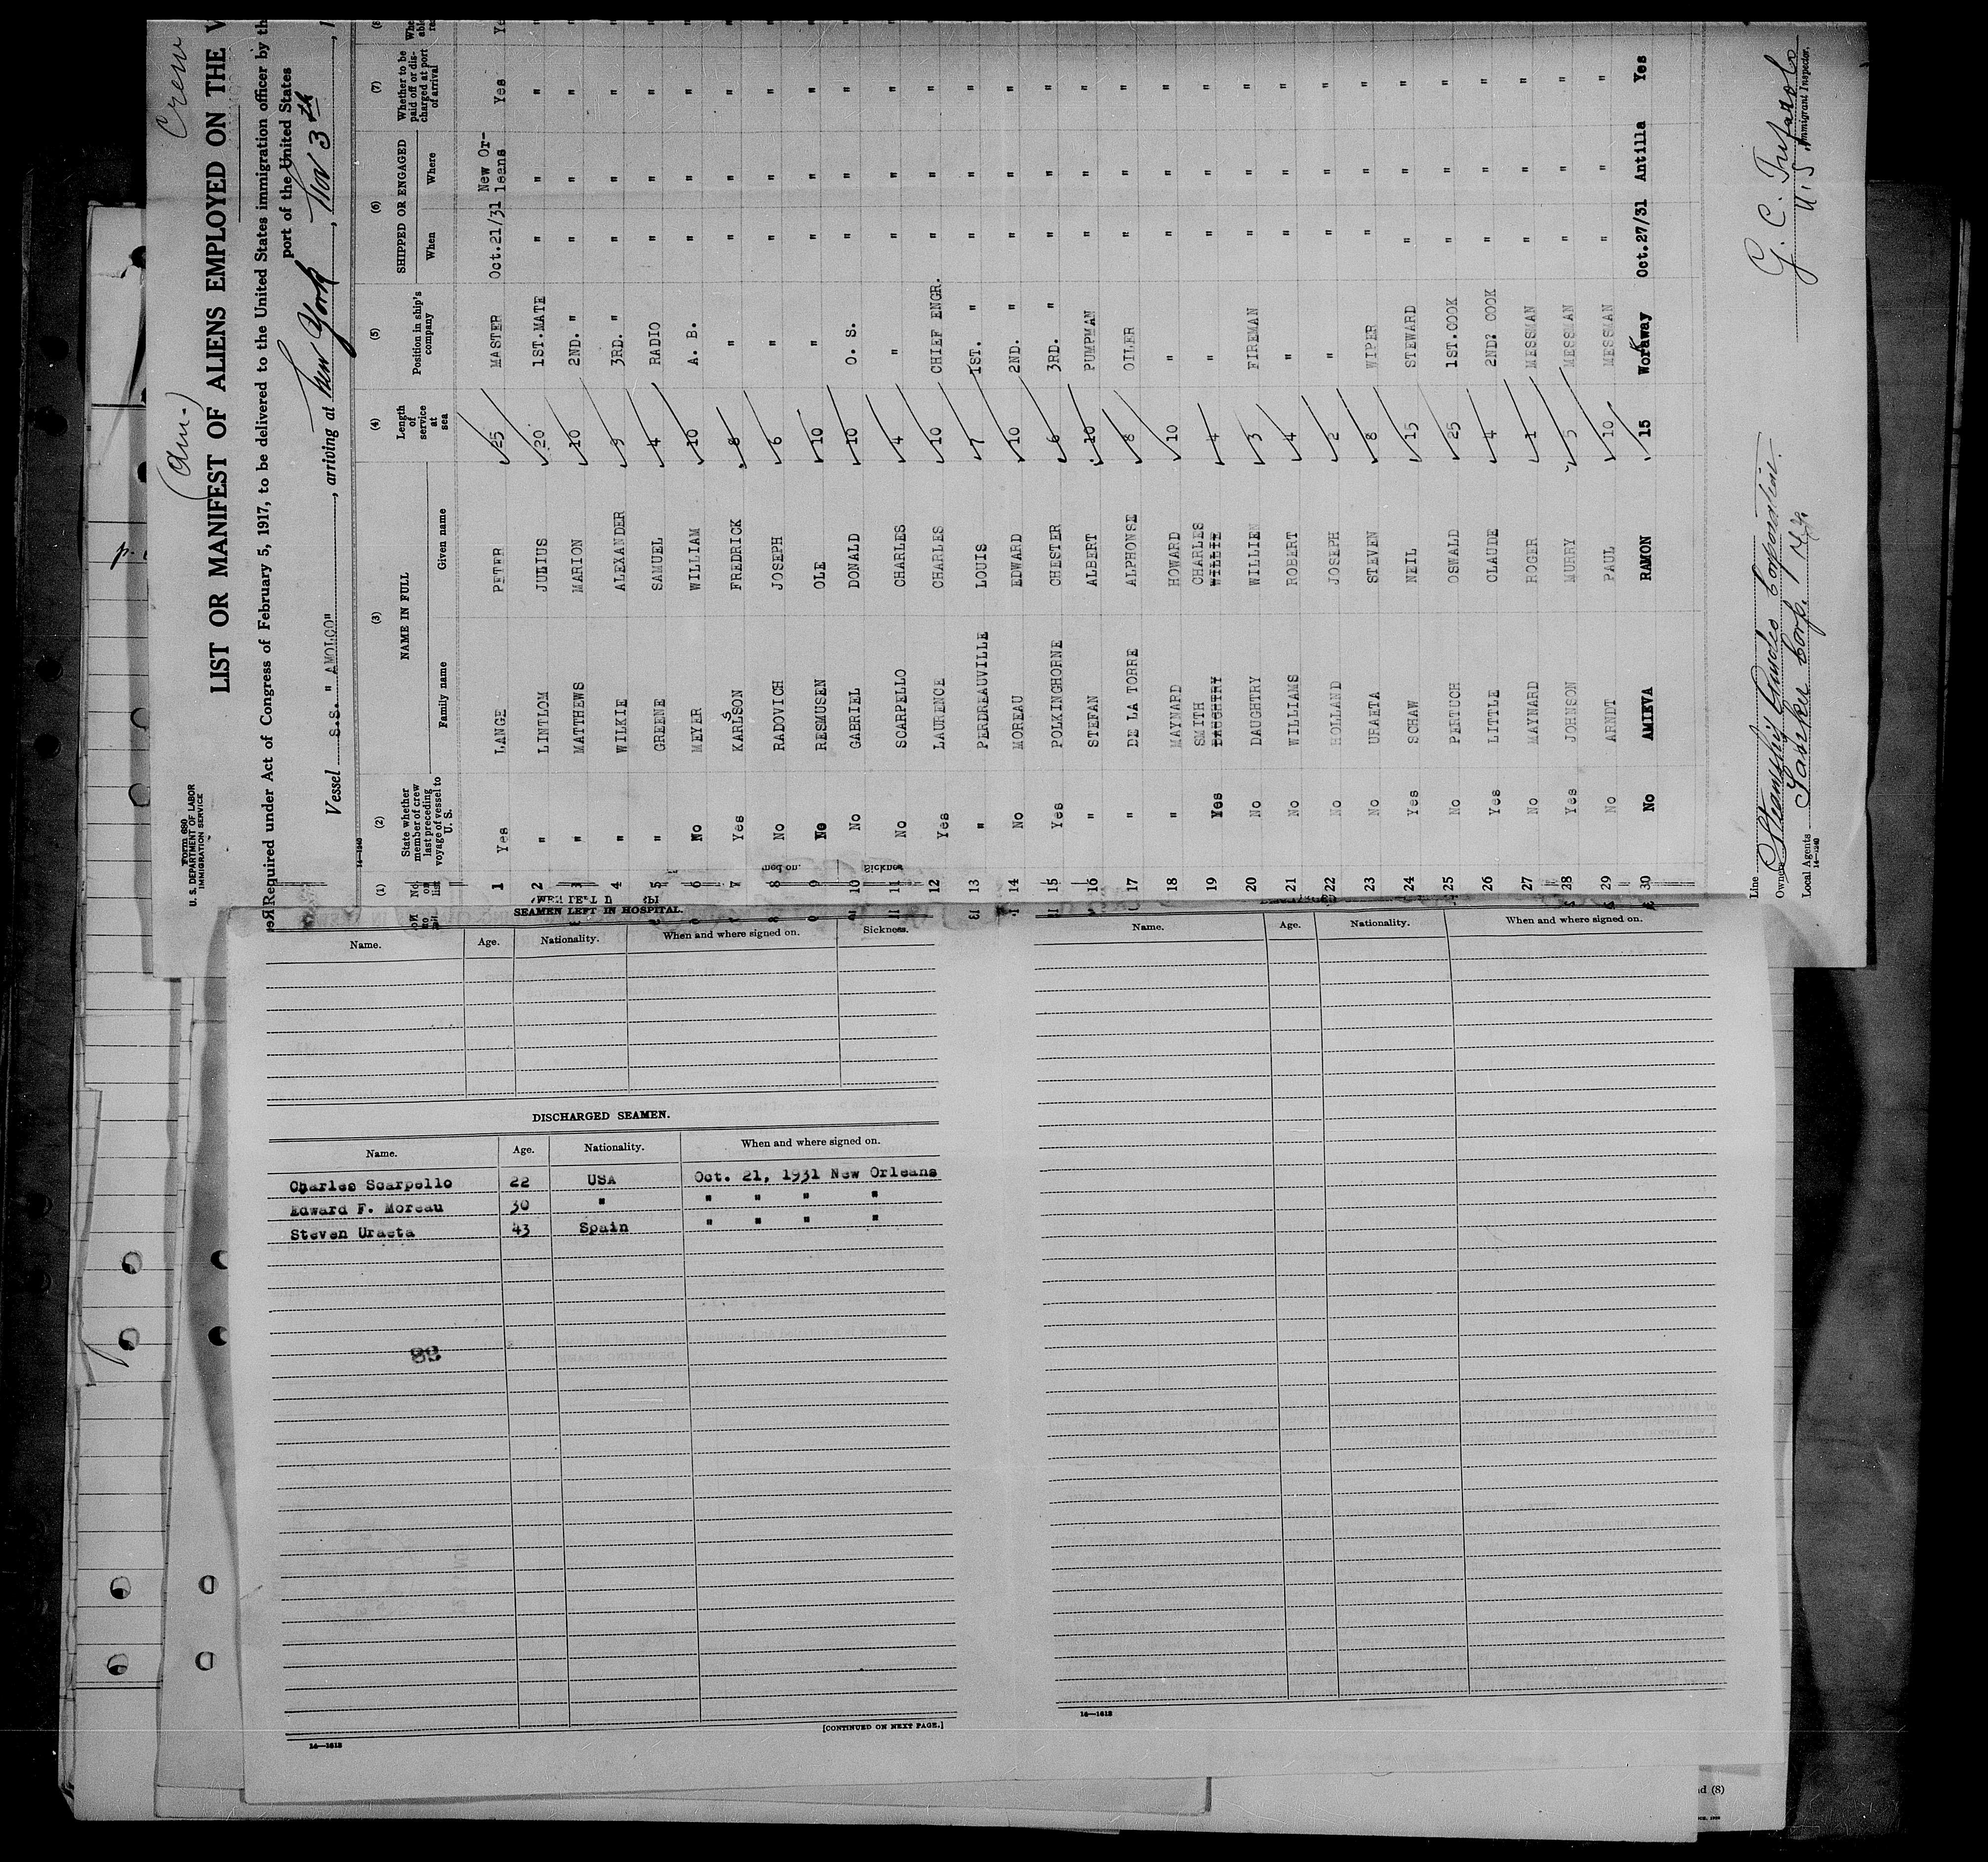 Crew
(Am.)
Form 680
U. S. DEPARTMENT OF LABOR
IMMIGRATION SERVICE
LIST OR MANIFEST OF ALIENS EMPLOYED ON THE V
Required under Act of Congress of February 5, 1917, to be delivered to the United States immigration officer by th
port of the United States
Vessel S.S. "AMOLCO", arriving at New York, Nov 3th, 1
14—1240
(1) (2) (3) (4) (5) (6) (7)
No. on list State whether member of crew last preceding voyage of vessel to U. S. NAME IN FULL Length of service at sea Position in ship's company SHIPPED OR ENGAGED Whether to be paid off or discharged at port of arrival
Family name Given name When Where
1 Yes LANGE PETER 25 MASTER Oct.21/31 New Orleans Yes
2 " LINTLOM JULIUS 20 1ST.MATE " " "
3 " MATTHEWS MARION 10 2ND. " " " "
4 " WILKIE ALEXANDER 9 3RD. " " " "
5 " GREENE SAMUEL 4 RADIO " " "
6 No MEYER WILLIAM 10 A. B. " " "
7 Yes KARLSON FREDRICK 8 " " " "
8 No RADOVICH JOSEPH 6 " " " "
9 No RESMUSEN OLE 10 " " " "
10 No GABRIEL DONALD 10 O. S. " " "
11 No SCARPELLO CHARLES 4 " " " "
12 Yes LAURENCE CHARLES 10 CHIEF ENGR. " " "
13 " PERDREAUVILLE LOUIS 7 1ST. " " " "
14 No MOREAU EDWARD 10 2ND. " " " "
15 Yes POLKINGHORNE CHESTER 6 3RD. " " " "
16 " STEFAN ALBERT 10 PUMPMAN " " "
17 " DE LA TORRE ALPHONSE 8 OILER " " "
18 " MAYNARD HOWARD 10 " " " "
SMITH CHARLES
19 Yes DAUGHTRY WILLIE 4 " " " "
20 No DAUGHTRY WILLIE 3 FIREMAN " " "
21 No WILLIAMS ROBERT 4 " " " "
22 No HOLLAND JOSEPH 2 " " " "
23 No URAETA STEVEN 8 WIPER " " "
24 Yes SCHAW NEIL 15 STEWARD " " "
25 No PERTUCH OSWALD 25 1ST.COOK " " "
26 Yes LITTLE CLAUDE 4 2ND. COOK " " "
27 No MAYNARD ROGER 1 MESSMAN " " "
28 Yes JOHNSON MURRY 5 MESSMAN " " "
29 No ARNDT PAUL 10 MESSMAN " " "
30 No AMIEVA RAMON 15 Workaway Oct.27/31 Antilla Yes
Line
Owners Corporation.
Local Agents Corp.
14—1240
G. C.
U. S. Immigrant Inspector.
SEAMEN LEFT IN HOSPITAL.
Name. Age. Nationality. When and where signed on. Sickness.
DISCHARGED SEAMEN.
Name. Age. Nationality. When and where signed on.
Charles Scarpello 22 USA Oct. 21, 1931 New Orleans
Edward F. Moreau 30 " " " " "
Steven Uraeta 43 Spain " " " "
[CONTINUED ON NEXT PAGE.]
14—1612
Name. Age. Nationality. When and where signed on.
14—1612
nd (8)